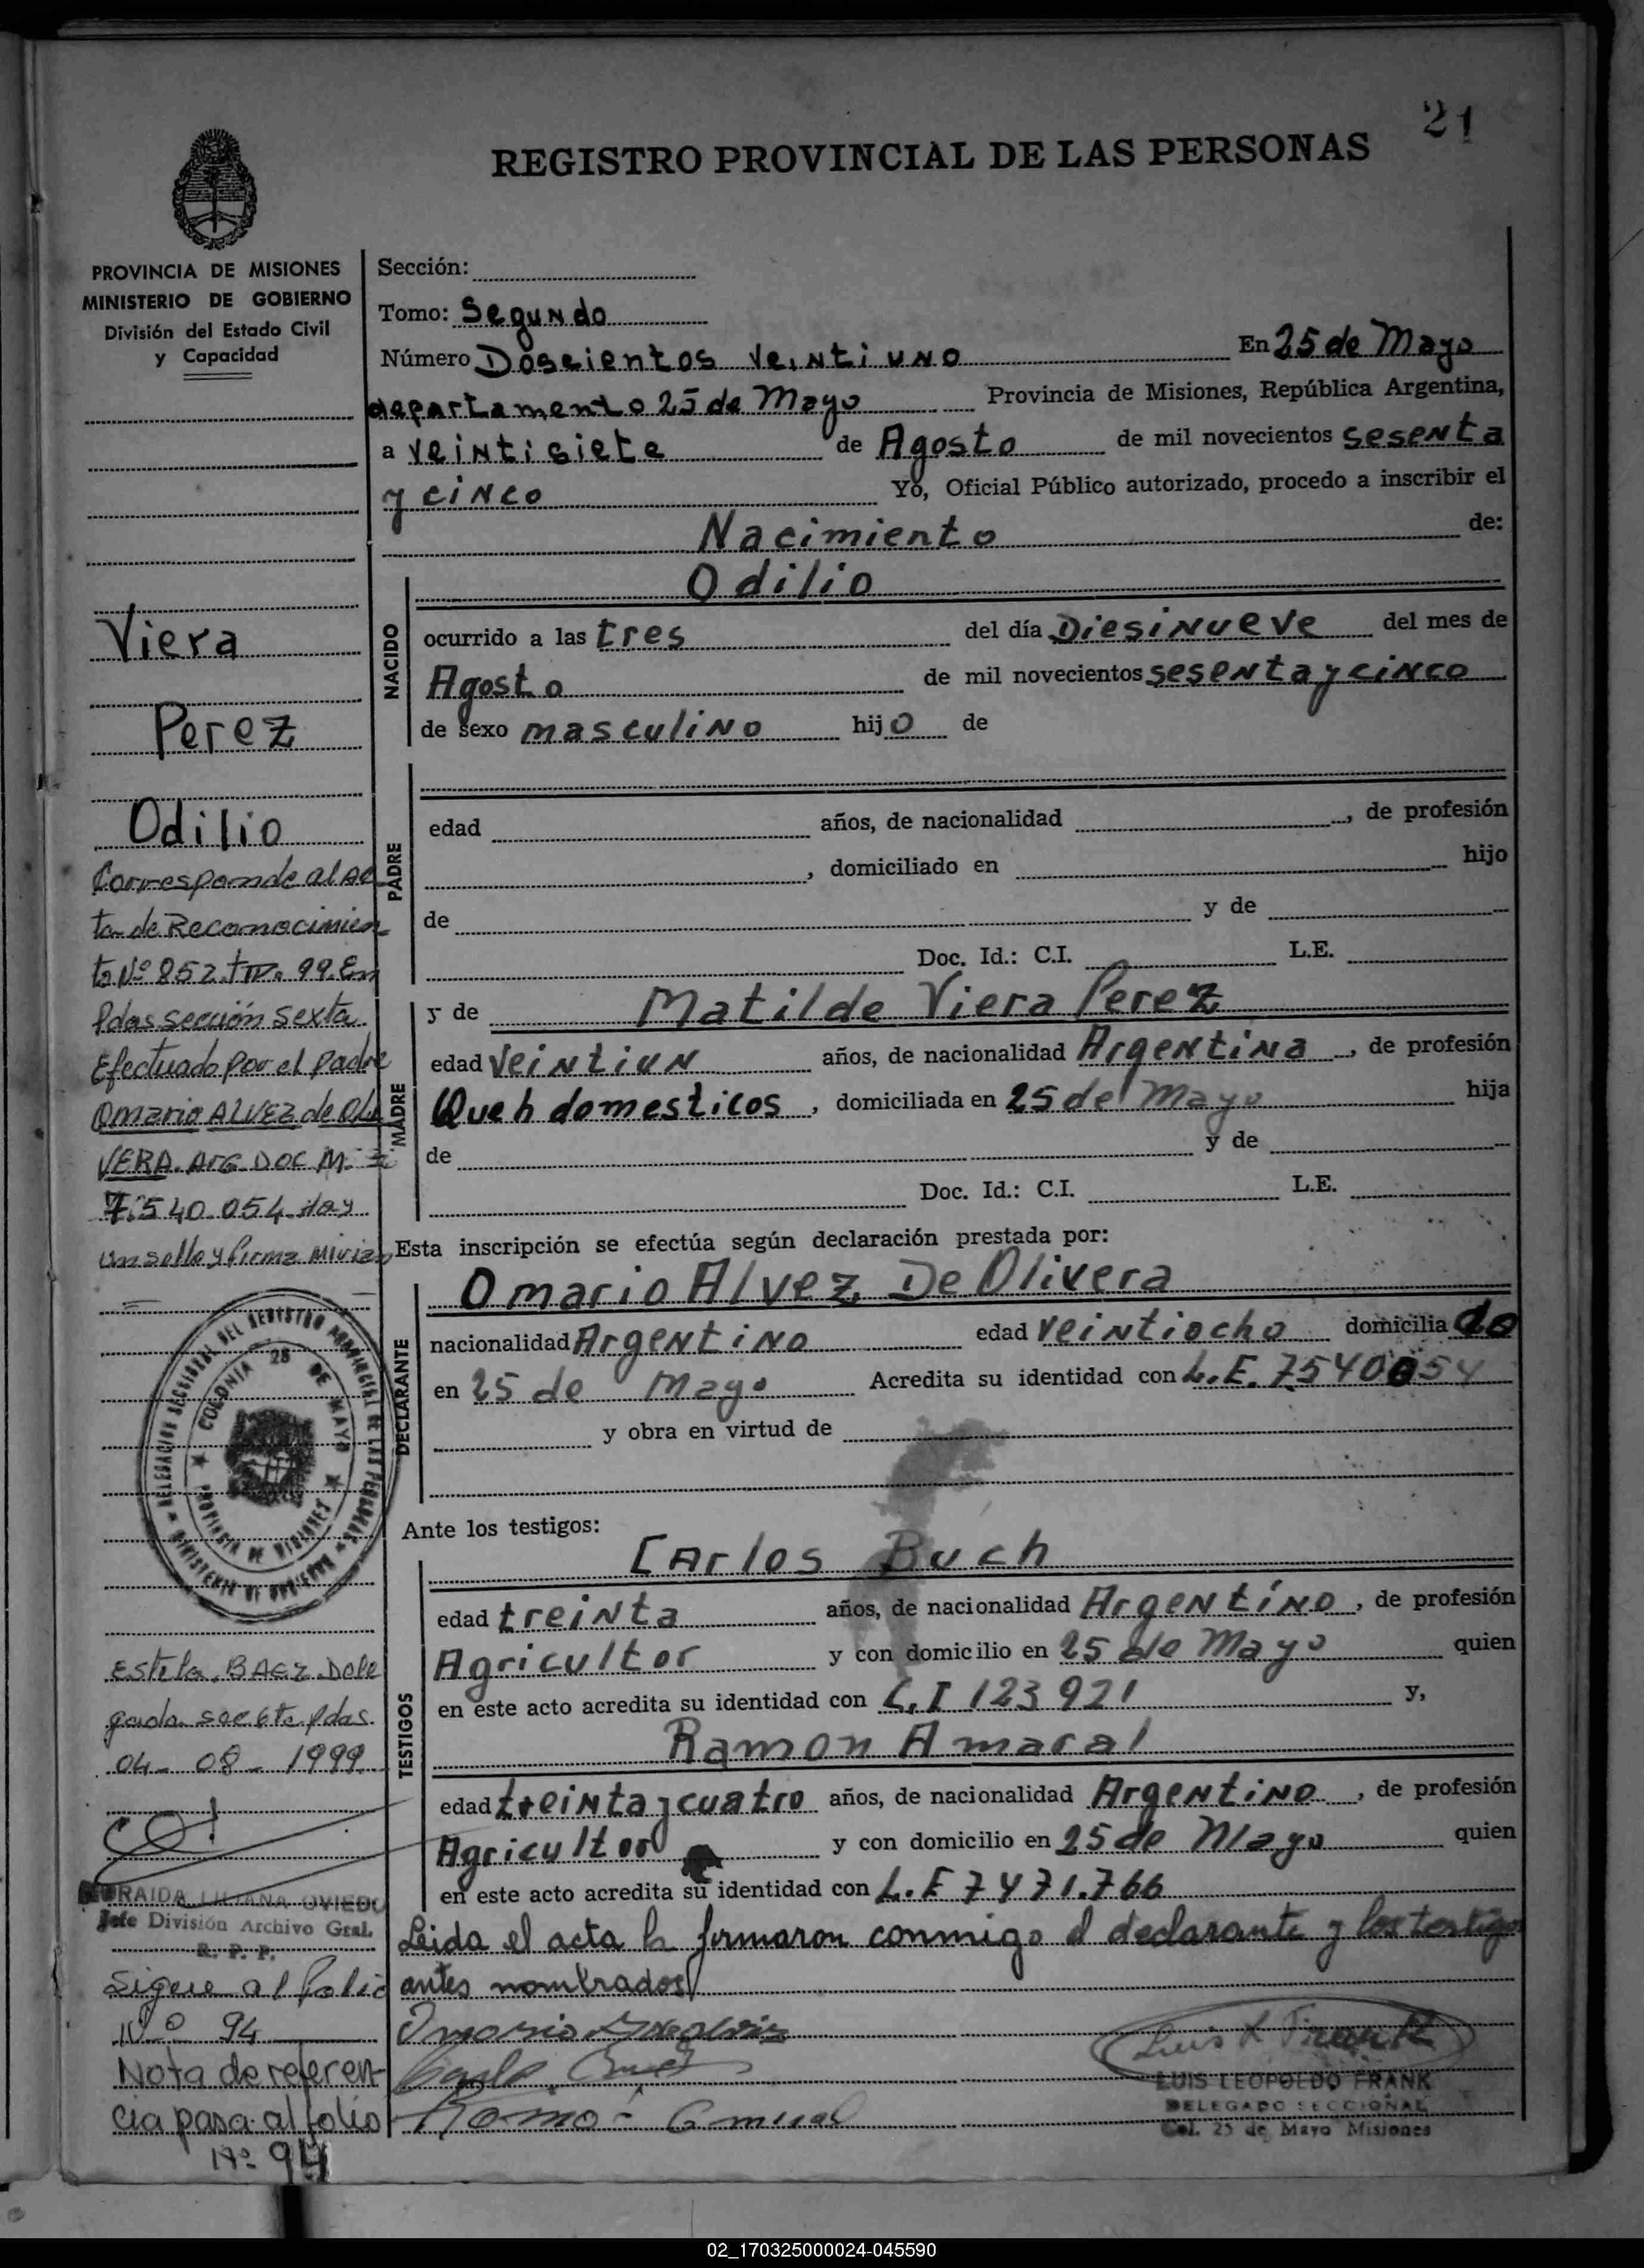 21
REGISTRO PROVINCIAL DE LAS PERSONAS
PROVINCIA DE MISIONES
MINISTERIO DE GOBIERNO
División del Estado Civil
y Capacidad
Viera
Perez
Odilio
Corresponde al Ac
ta de Reconocimien
to Nº 852. T III. 99. En
Pdas sección sexta
Efectuado por el padre
Omario ALVEZ de OLI
VERA. Arg DOC M.
7.540.054 Hay
un sello y firma Mirian
DELEGACION SECCIONAL DEL REGISTRO PROVINCIAL DE LAS PERSONAS
MINISTERIO DE GOBIERNO
COLONIA 25 DE MAYO
PROVINCIA DE MISIONES
Estela BAEZ Dele
gada sec 6ta Pdas.
04 - 08 - 1999
LILIANA OVIEDO
Jefe División Archivo Gral.
R. P. P.
Sigue al folio
Nº 94
Nota de referen-
cia pasa al folio
Nº 94
Sección:
Tomo: Segundo
Número Doscientos Veinti uno En 25 de Mayo
departamento 25 de Mayo Provincia de Misiones, República Argentina,
a veintisiete de Agosto de mil novecientos sesenta
y cinco Yo, Oficial Público autorizado, procedo a inscribir el
Nacimiento de:
NACIDO
Odilio
ocurrido a las tres del día Diesinueve del mes de
Agosto de mil novecientos sesenta y cinco
de sexo masculino hijo de
PADRE
edad años, de nacionalidad , de profesión
, domiciliado en hijo
de y de
Doc. Id.: C.I. L.E.
MADRE
y de Matilde Viera Perez
edad veintiun años, de nacionalidad Argentina , de profesión
Queh domesticos , domiciliada en 25 de Mayo hija
de y de
Doc. Id.: C.I. L.E.
Esta inscripción se efectúa según declaración prestada por:
DECLARANTE
Omario Alvez De Olivera
nacionalidad Argentino edad veintiocho domiciliado
en 25 de Mayo Acredita su identidad con L.E. 7540054
y obra en virtud de
Ante los testigos:
TESTIGOS
Carlos Buch
edad treinta años, de nacionalidad Argentino , de profesión
Agricultor y con domicilio en 25 de Mayo quien
en este acto acredita su identidad con C.I 123921 y,
Ramon Amaral
edad treinta y cuatro años, de nacionalidad Argentino , de profesión
Agricultor y con domicilio en 25 de Mayo quien
en este acto acredita su identidad con L.E 7471.766
Leida el acta la firmaron conmigo el declarante y los testigos
antes nombrados
Luis L Frank
LUIS LEOPOLDO FRANK
DELEGADO SECCIONAL
Col. 25 de Mayo Misiones
02_170325000024-045590